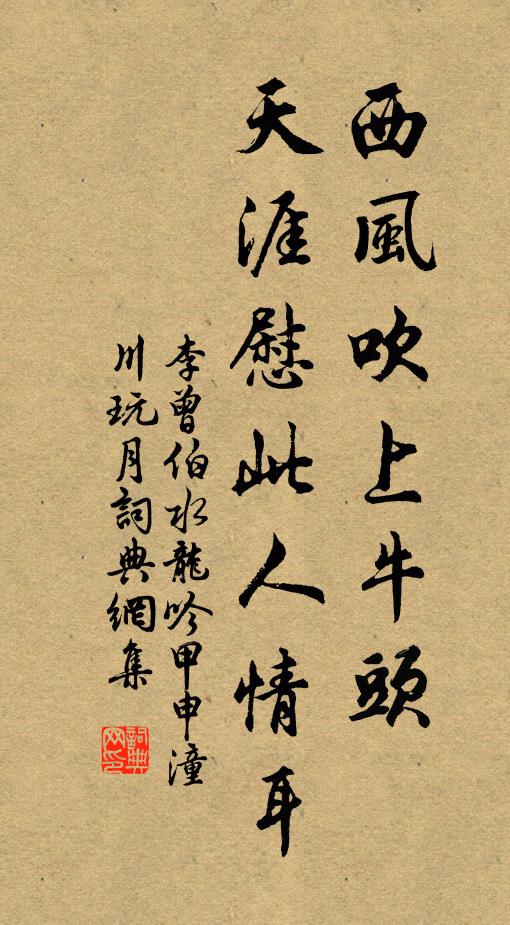 西風吹上牛頭
天涯慰此人情耳
李曾伯水龍吟甲申潼
川玩月詞典網集
詞典网印